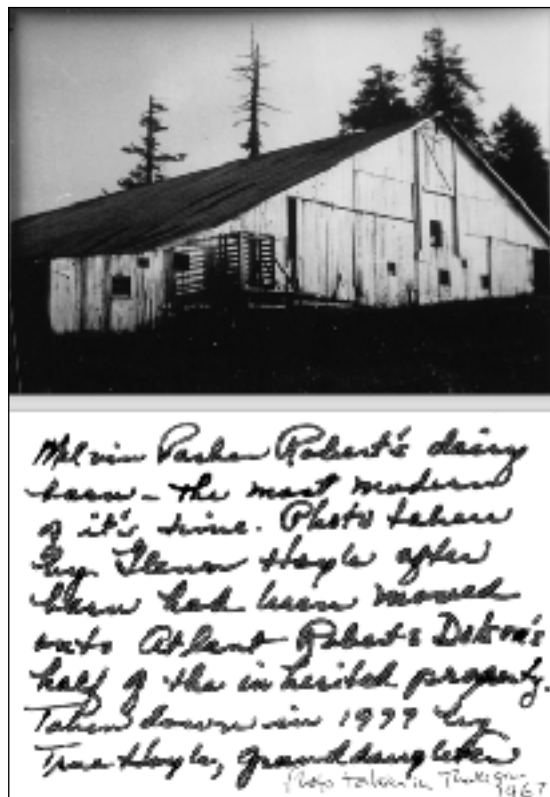 Melvin Parker Robert's dairy
barn - the most modern
of it's time. Photo taken
by Glenn Hoyle after
barn had been moved
onto Atlant Roberts Dotson's
half of the inherited property.
Taken down in 1997 by
True Hoyle, granddaughter
Photo taken in
1967